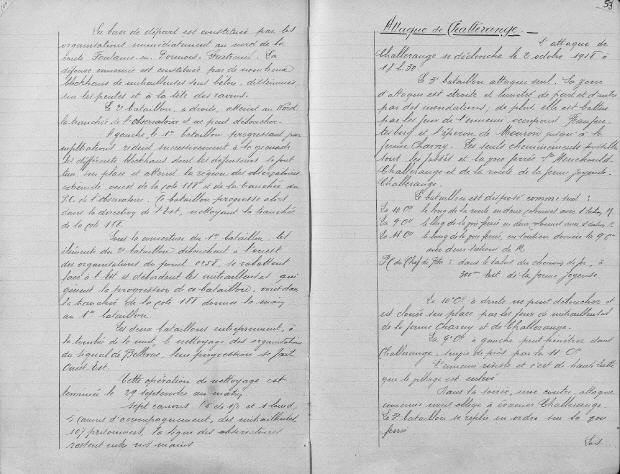 La base de départ est constituée par les
organisations immédiatement au nord de la
route Fontaine-en-Dormois,
défense ennemie est constituée par de nombreux
blockhaus de mitrailleuses sous béton, disséminés
sur les pentes et à la tête des ravins.
Le 2e bataillon, à droite, atteint au Nord
la tranchée de l'Observatoire et ne peut déboucher.
A gauche, le 1er bataillon progressant par
infiltrations réduit successivement à la grenade
les différents blockhaus dont les défenseurs se font
tuer sur place et atteint la région des observatoires
ouest de la cote 188 et de la tranchée du
P.C. de l'Observatoire. Ce bataillon progresse alors
dans la direction de l'Est, nettoyant la tranchée
de la cote 188.
Sous la couverture du 1er bataillon, les
éléments du 2e bataillon débouchent à l'ouest
des organisations du point se rabattent
face à l'Est et débordent les mitrailleuses qui
gênent la progression de ce bataillon,
la tranchée de la cote 188 donner la main
au 1er bataillon.
Les deux bataillons entreprennent, à
la tombée de la nuit, le nettoyage des organisations
du signal de Bellevue, leur progression se fait
Ouest-Est.
Cette opération de nettoyage est
terminée le 29 septembre au matin
Sept canons
d'accompagnement, des mitrailleuses
107 prisonniers. La ligne des observatoires
restent entre nos mains
53
Attaque de Challerange.
L'attaque de
Challerange se déclenche le 2 octobre 1918 à
Le 3e bataillon attaque seul. La zone
d'attaque est étroite et limitée de part et d'autre
par des inondations, de plus elle est battue
par les feux de l'ennemi occupant
et l'éperon de Mouron jusqu'à la
ferme Charny. Les seuls cheminements possibles
sont les fossés et la voie ferrée Ste Menehould
Challerange et de la route de la ferme Joyeuse
Challerange.
Le bataillon est disposé comme suit :
La 10e Cie le long de la route en deux colonnes avec 1 section M.
La 9e Cie le long de la voie ferrée en deux colonnes avec 1 section M.
La 11e Cie le long de la voie ferrée, en soutien derrière la 9e Cie
avec deux sections de M.
P.C. du Chef de Bon : dans le talus du chemin de fer, à
300m Est de la ferme Joyeuse.
La 10e Cie à droite ne peut déboucher et
est clouée sur place par les feux de mitrailleuses
de la ferme Charny et de Challerange.
La 9e Cie à gauche peut pénétrer dans
Challerange, suivie de près par la 11e Cie.
L'ennemi résiste et c'est de haute lutte
que le village est enlevé
Dans la soirée, une contre-attaque
ennemie nous oblige à évacuer Challerange.
Le 3e bataillon se replie en ordre sur la voie
ferrée